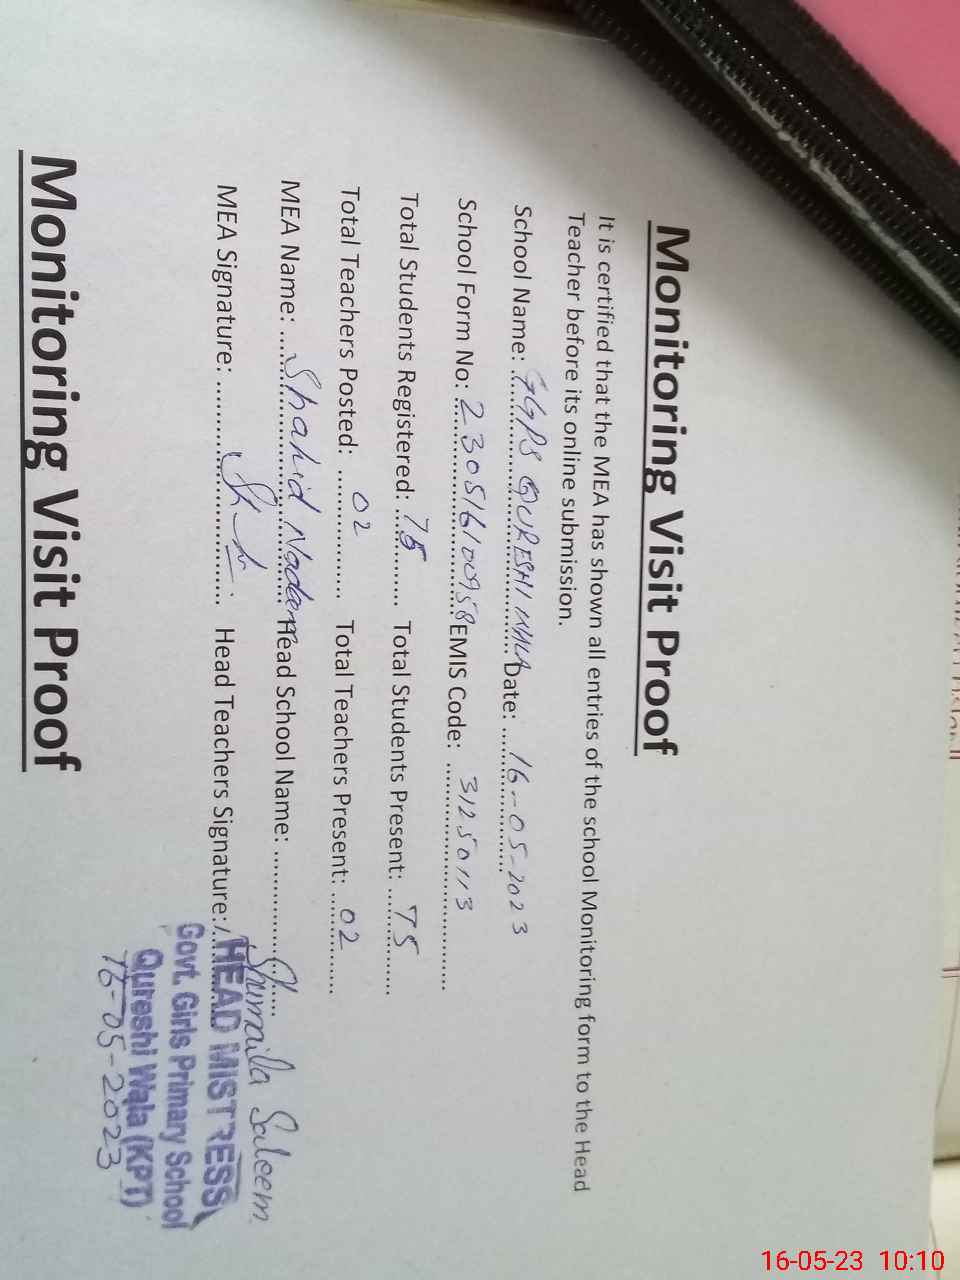 Monitoring Visit Proof
It is certified that the MEA has shown all entries of the school Monitoring form to the Head
Teacher before its online submission.
School Name: GGPS QURESHI WALA Date: 16-05-2023
School Form No: 230516100958 EMIS Code: 31250113
Total Students Registered: 75 Total Students Present: 75
Total Teachers Posted: 02 Total Teachers Present: 02
MEA Name: Shahid Nadeem Head School Name: Shumaila Saleem
MEA Signature: Head Teachers Signature:
HEAD MISTRESS
Govt. Girls Primary School
Qureshi Wala (KPT)
16-05-2023
Monitoring Visit Proof
16-05-23 10:10